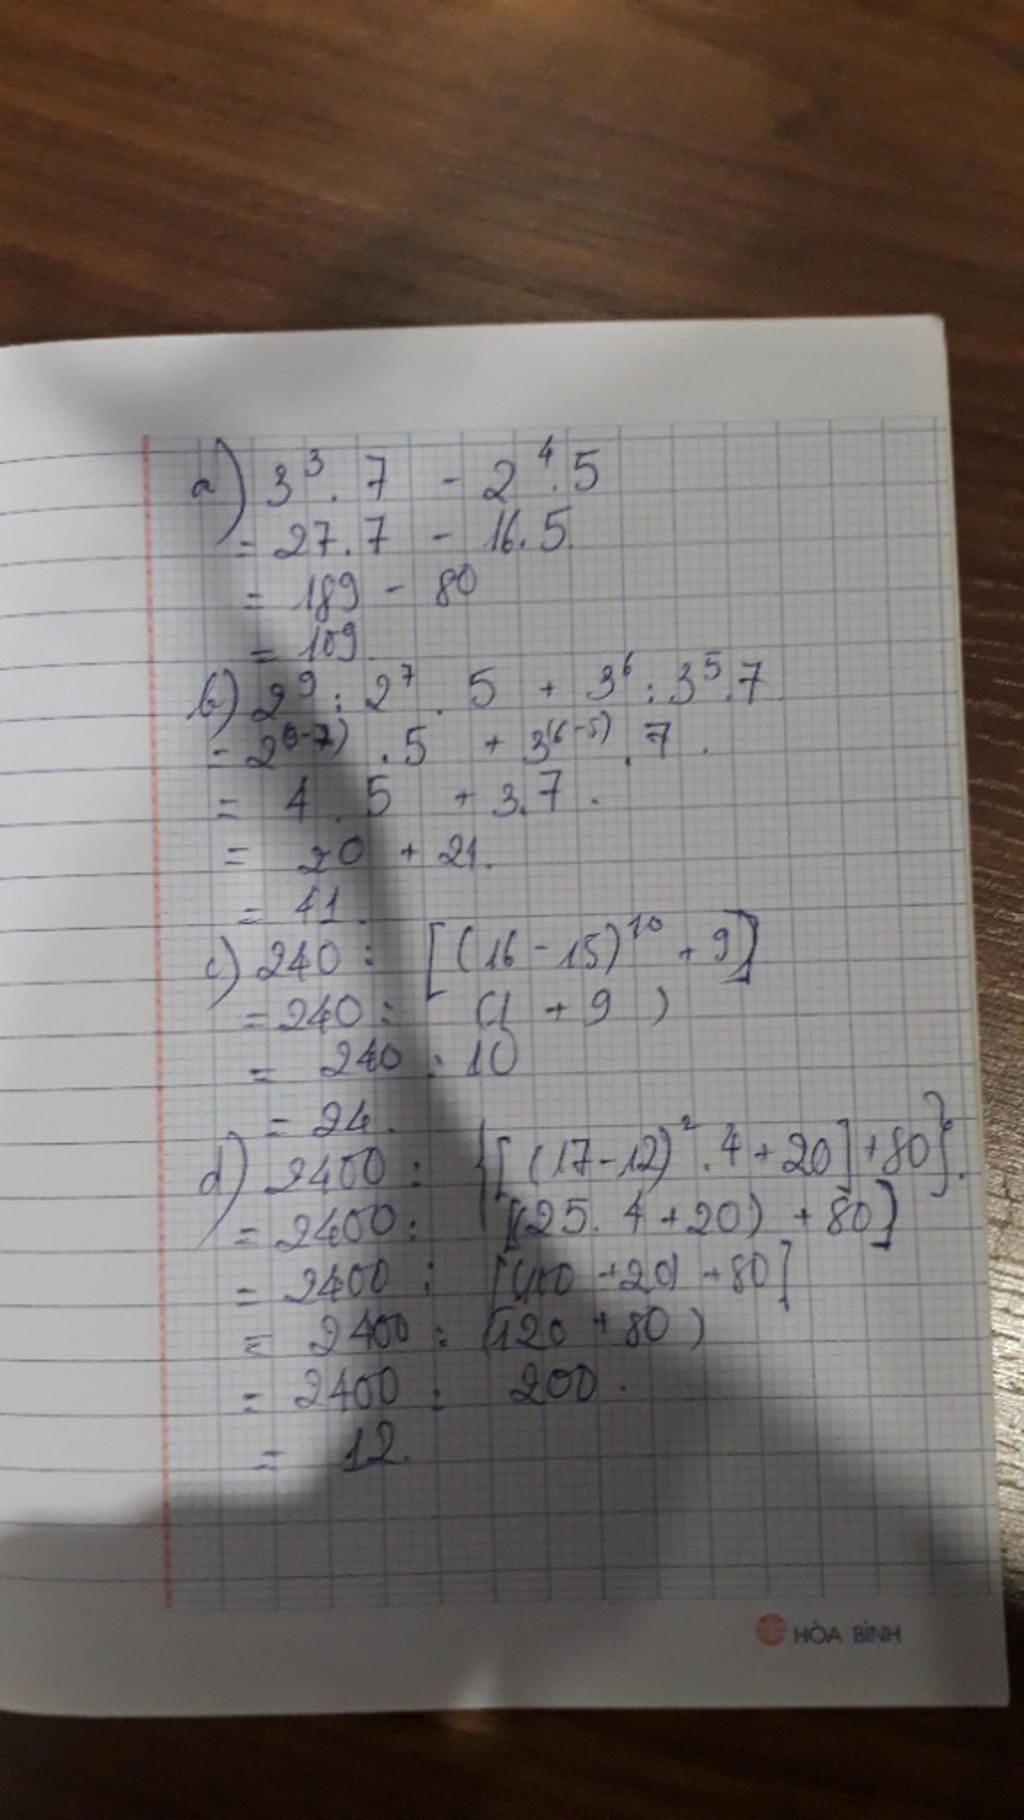 a) 3³ . 7 - 2⁴ . 5
= 27 . 7 - 16 . 5.
= 189 - 80
= 109
b) 2⁹ : 2⁷ . 5 + 3⁶ : 3⁵ . 7
= 2⁽⁹⁻⁷⁾ . 5 + 3⁽⁶⁻⁵⁾ . 7 .
= 4 . 5 + 3 . 7 .
= 20 + 21.
= 41.
c) 240 : [(16 - 15)¹⁰ + 9]
= 240 : (1 + 9)
= 240 : 10
= 24.
d) 2400 : {[(17 - 12)² . 4 + 20] + 80}.
= 2400 : [(25 . 4 + 20) + 80]
= 2400 : [(100 + 20) + 80]
= 2400 : (120 + 80)
= 2400 : 200 .
= 12.
HÒA BÌNH